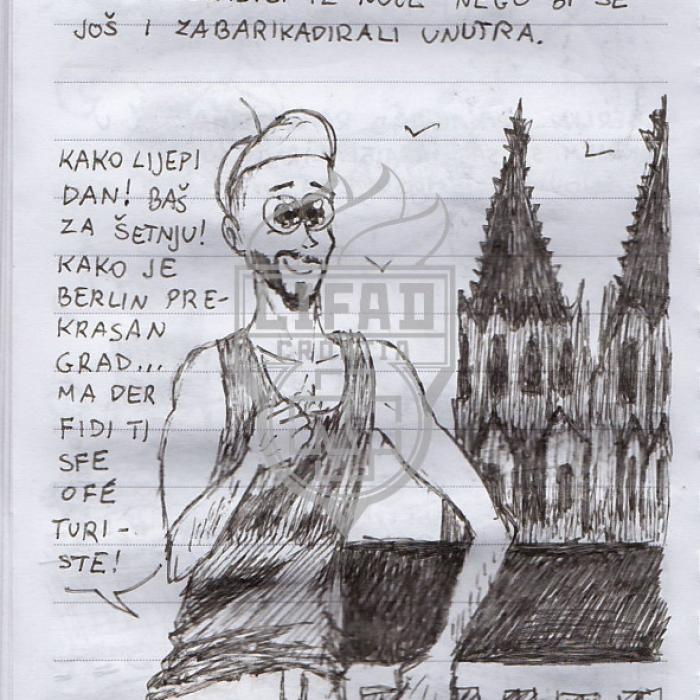 NEGO BI SE
JOŠ I ZABARIKADIRALI UNUTRA.
KAKO LIJEPI
DAN! BAŠ
ZA ŠETNJU!
KAKO JE
BERLIN PRE-
KRASAN
GRAD...
MA DER
FIDI TI
SFE
OFÉ
TURI-
STE!
LIFAD
CROATIA